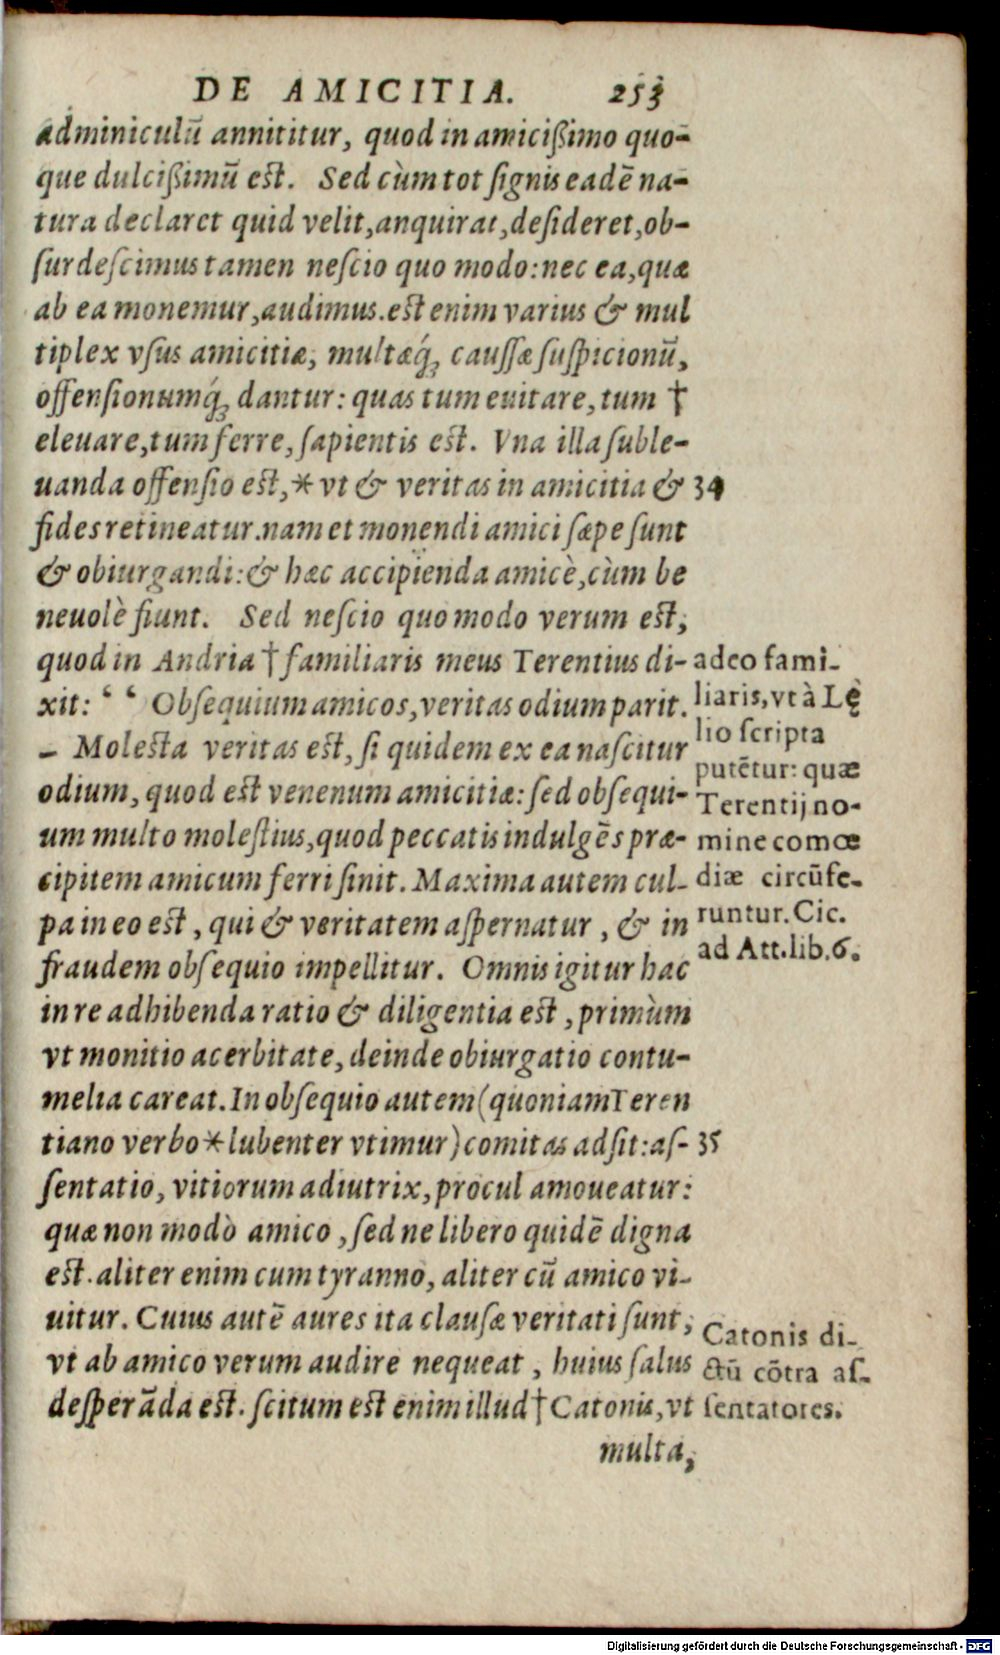 DE AMICITIA. 253
adminiculū annititur, quod in amicißimo quo-
que dulcißimū est. Sed cùm tot ſignis eadē na-
tura declaret quid velit, anquirat, deſideret, ob-
ſurdeſcimus tamen neſcio quo modo: nec ea, quæ
ab ea monemur, audimus. est enim varius & mul
tiplex vſus amicitiæ, multæq́; cauſſæ ſuſpicionū,
offenſionumq́; dantur: quas tum euitare, tum †
eleuare, tum ferre, ſapientis est. Vna illa ſuble-
uanda offenſio est, * vt & veritas in amicitia & 34
fides retineatur. nam et monendi amici ſæpe ſunt
& obiurgandi: & hæc accipienda amicè, cùm be
neuolè fiunt. Sed neſcio quo modo verum est,
quod in Andria † familiaris meus Terentius di-
xit: ‘‘ Obſequium amicos, veritas odium parit.
– Molesta veritas est, ſi quidem ex ea naſcitur
odium, quod est venenum amicitiæ: ſed obſequi-
um multo moleſtius, quod peccatis indulgēs præ-
cipitem amicum ferri ſinit. Maxima autem cul-
pa in eo est, qui & veritatem aſpernatur, & in
fraudem obſequio impellitur. Omnis igitur hac
in re adhibenda ratio & diligentia est, primùm
vt monitio acerbitate, deinde obiurgatio contu-
melia careat. In obſequio autem (quoniam Teren
tiano verbo * lubenter vtimur) comitas adſit: aſ- 35
ſentatio, vitiorum adiutrix, procul amoueatur:
quæ non modò amico, ſed ne libero quidē digna
est. aliter enim cum tyranno, aliter cū amico vi-
uitur. Cuius autē aures ita clauſæ veritati ſunt,
vt ab amico verum audire nequeat, huius ſalus
deſperāda est. ſcitum est enim illud † Catonis, vt
multa,
adeo fami-
liaris, vt à Lę
lio ſcripta
putētur: quæ
Terentij no-
mine comœ
diæ circūfe-
runtur. Cic.
ad Att. lib. 6.
Catonis di-
ctū cōtra aſ-
ſentatores.
Digitalisierung gefördert durch die Deutsche Forschungsgemeinschaft - DFG